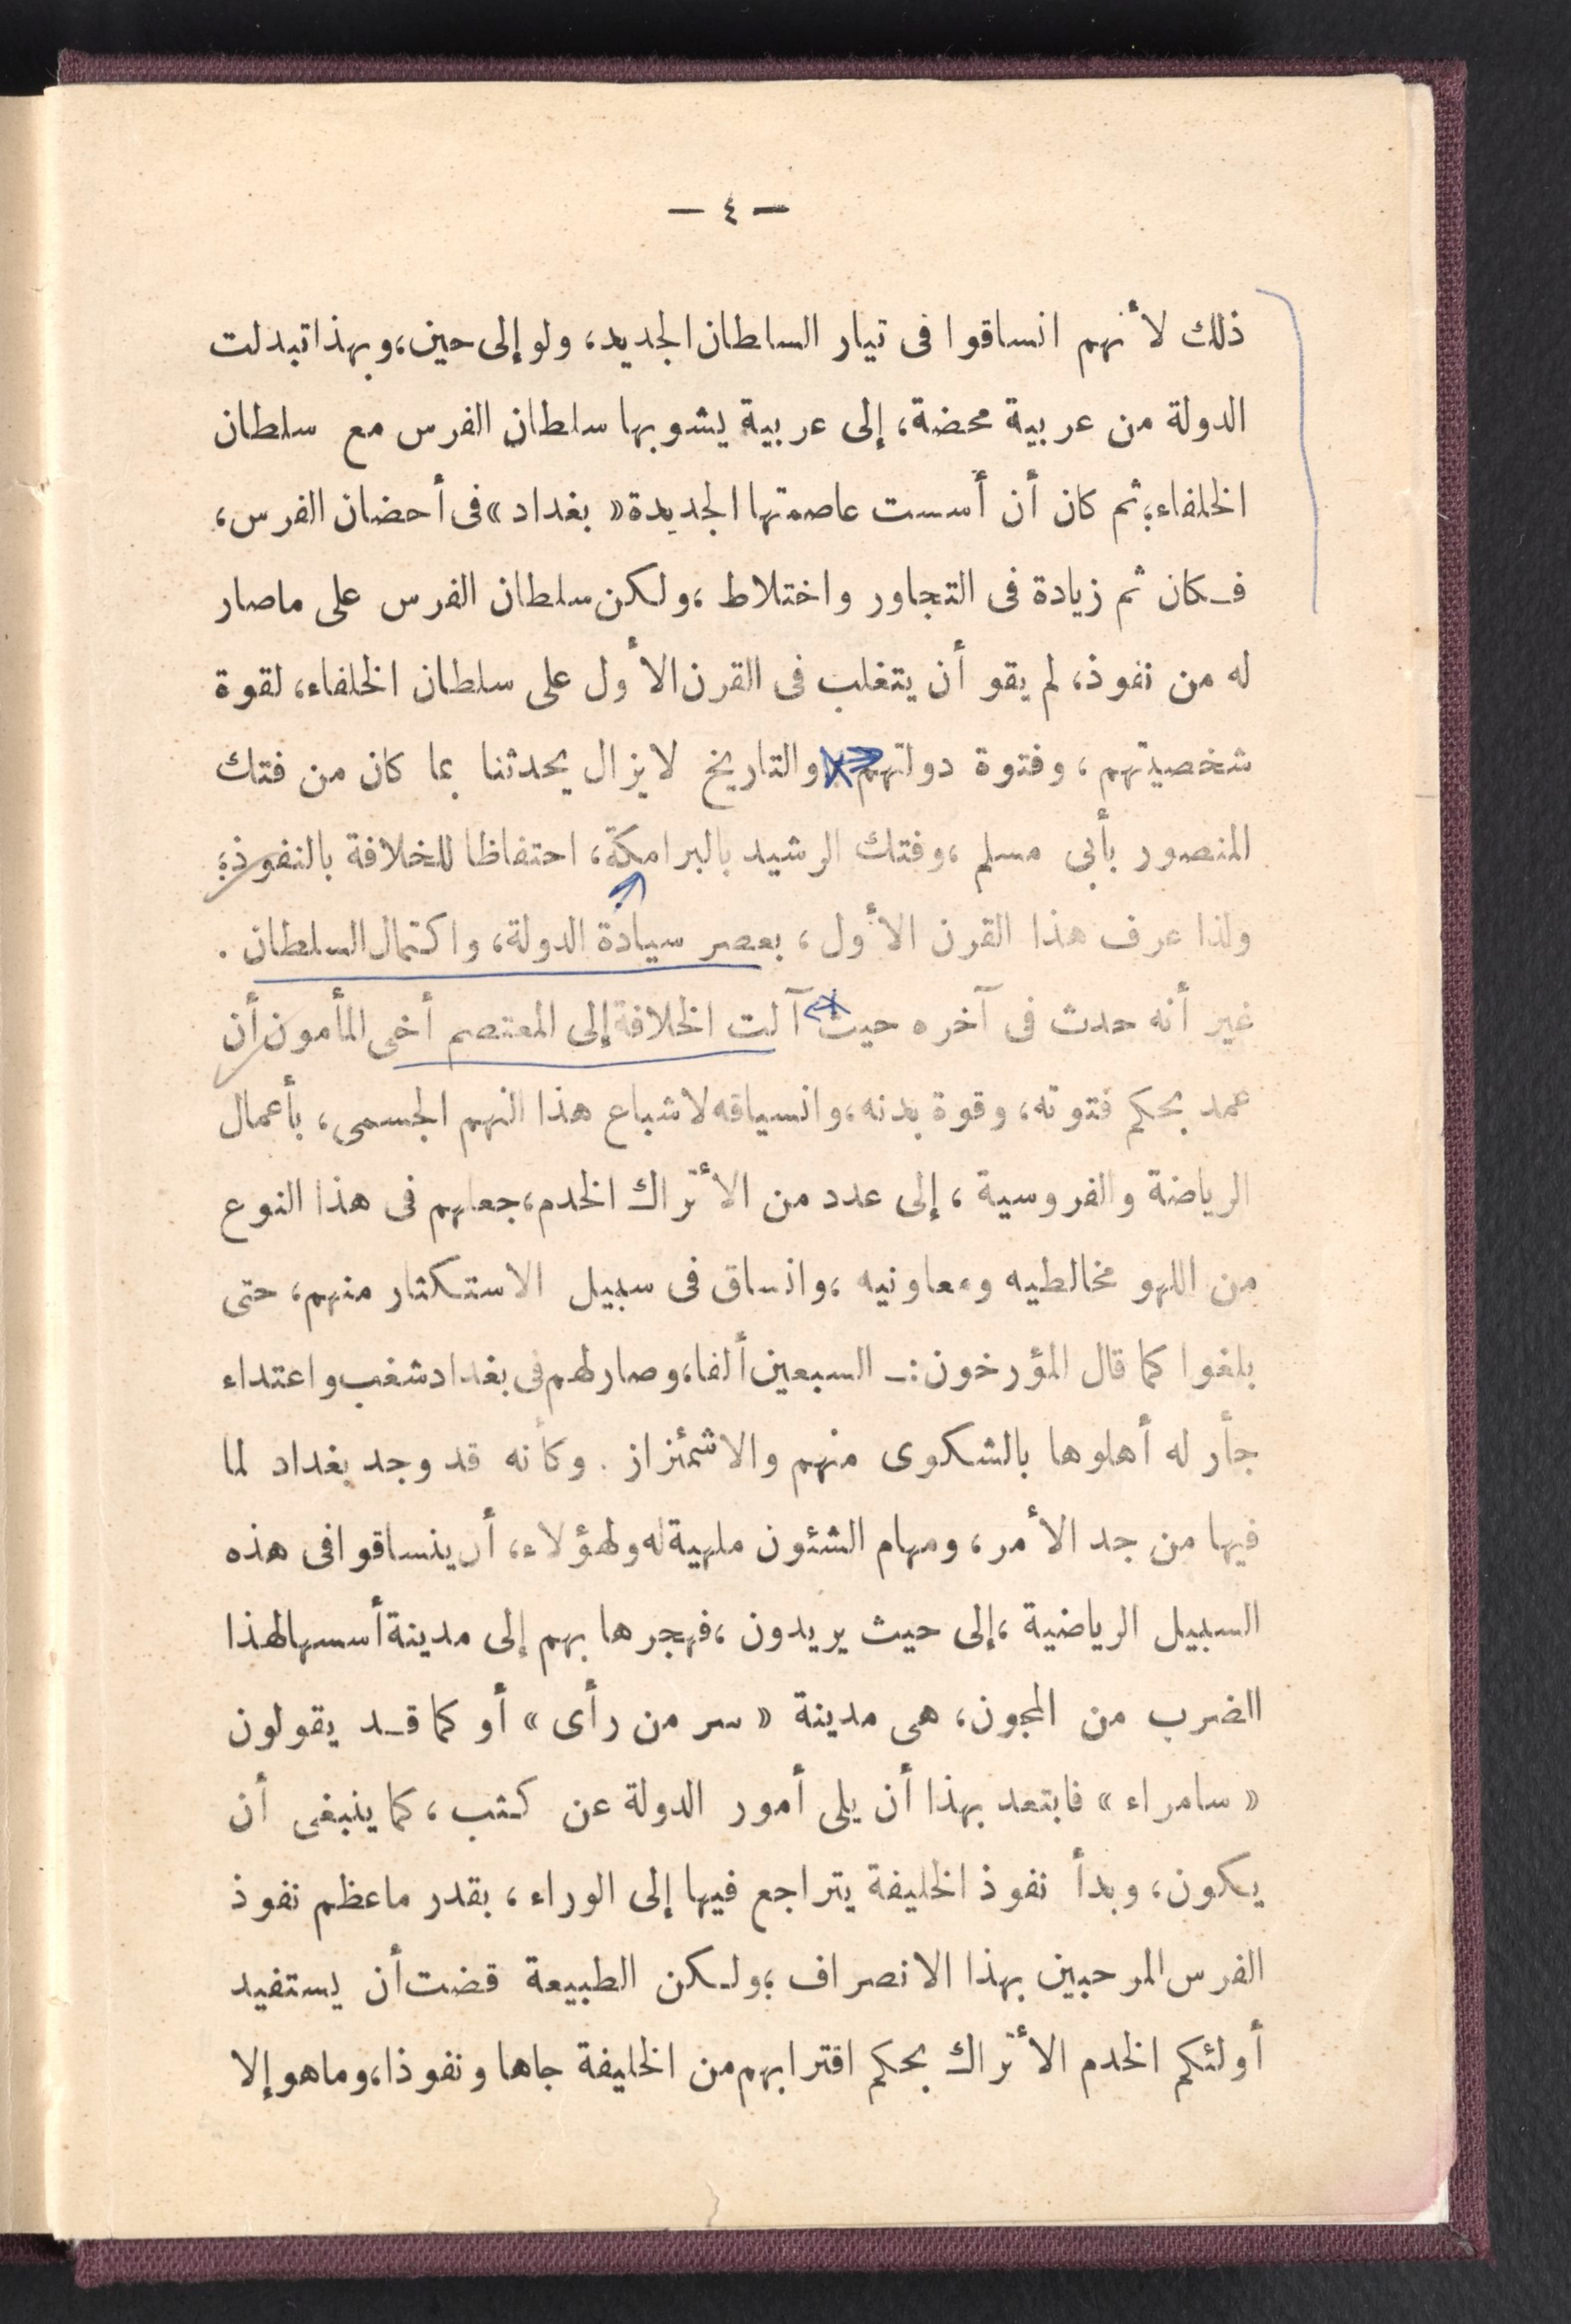 — ٤ —
ذلك لأنهم انساقوا فى تيار السلطان الجديد، ولو إلى حين، وبهذا تبدلت
الدولة من عربية محضة، إلى عربية يشوبها سلطان الفرس مع سلطان
الخلفاء؛ ثم كان أن أسست عاصمتها الجديدة « بغداد » فى أحضان الفرس،
فكان ثم زيادة فى التجاور واختلاط، ولكن سلطان الفرس على ما صار
له من نفوذ، لم يقو أن يتغلب فى القرن الأول على سلطان الخلفاء، لقوة
شخصيتهم، وفتوة دولتهم والتاريخ لا يزال يحدثنا بما كان من فتك
المنصور بأبى مسلم، وفتك الرشيد بالبرامكة، احتفاظا للخلافة بالنفوذ؛
ولذا عرف هذا القرن الأول، بعصر سيادة الدولة، واكتمال السلطان .
غير أنه حدث فى آخره حيث آلت الخلافة إلى المعتصم أخى المأمون أن
عمد بحكم فتوته، وقوة بدنه، وانسياقه لاشباع هذا النهم الجسمى، بأعمال
الرياضة والفروسية، إلى عدد من الأتراك الخدم، جعلهم فى هذا النوع
من اللهو مخالطيه ومعاونيه، وانساق فى سبيل الاستكثار منهم، حتى
بلغوا كما قال المؤرخون :ـ السبعين ألفا، وصار لهم فى بغداد شغب واعتداء
جأر له أهلوها بالشكوى منهم والاشمئزاز . وكأنه قد وجد بغداد لما
فيها من جد الأمر، ومهام الشئون ملهية له ولهؤلاء، أن ينساقوا فى هذه
السبيل الرياضية، إلى حيث يريدون، فهجرها بهم إلى مدينة أسسها لهذا
الضرب من المجون، هى مدينة « سر من رأى » أو كما قد يقولون
« سامراء » فابتعد بهذا أن يلى أمور الدولة عن كثب، كما ينبغى أن
يكون، وبدأ نفوذ الخليفة يتراجع فيها إلى الوراء، بقدر ما عظم نفوذ
الفرس المرحبين بهذا الانصراف؛ ولكن الطبيعة قضت أن يستفيد
أولئكم الخدم الأتراك بحكم اقترابهم من الخليفة جاها ونفوذا، وما هو إلا